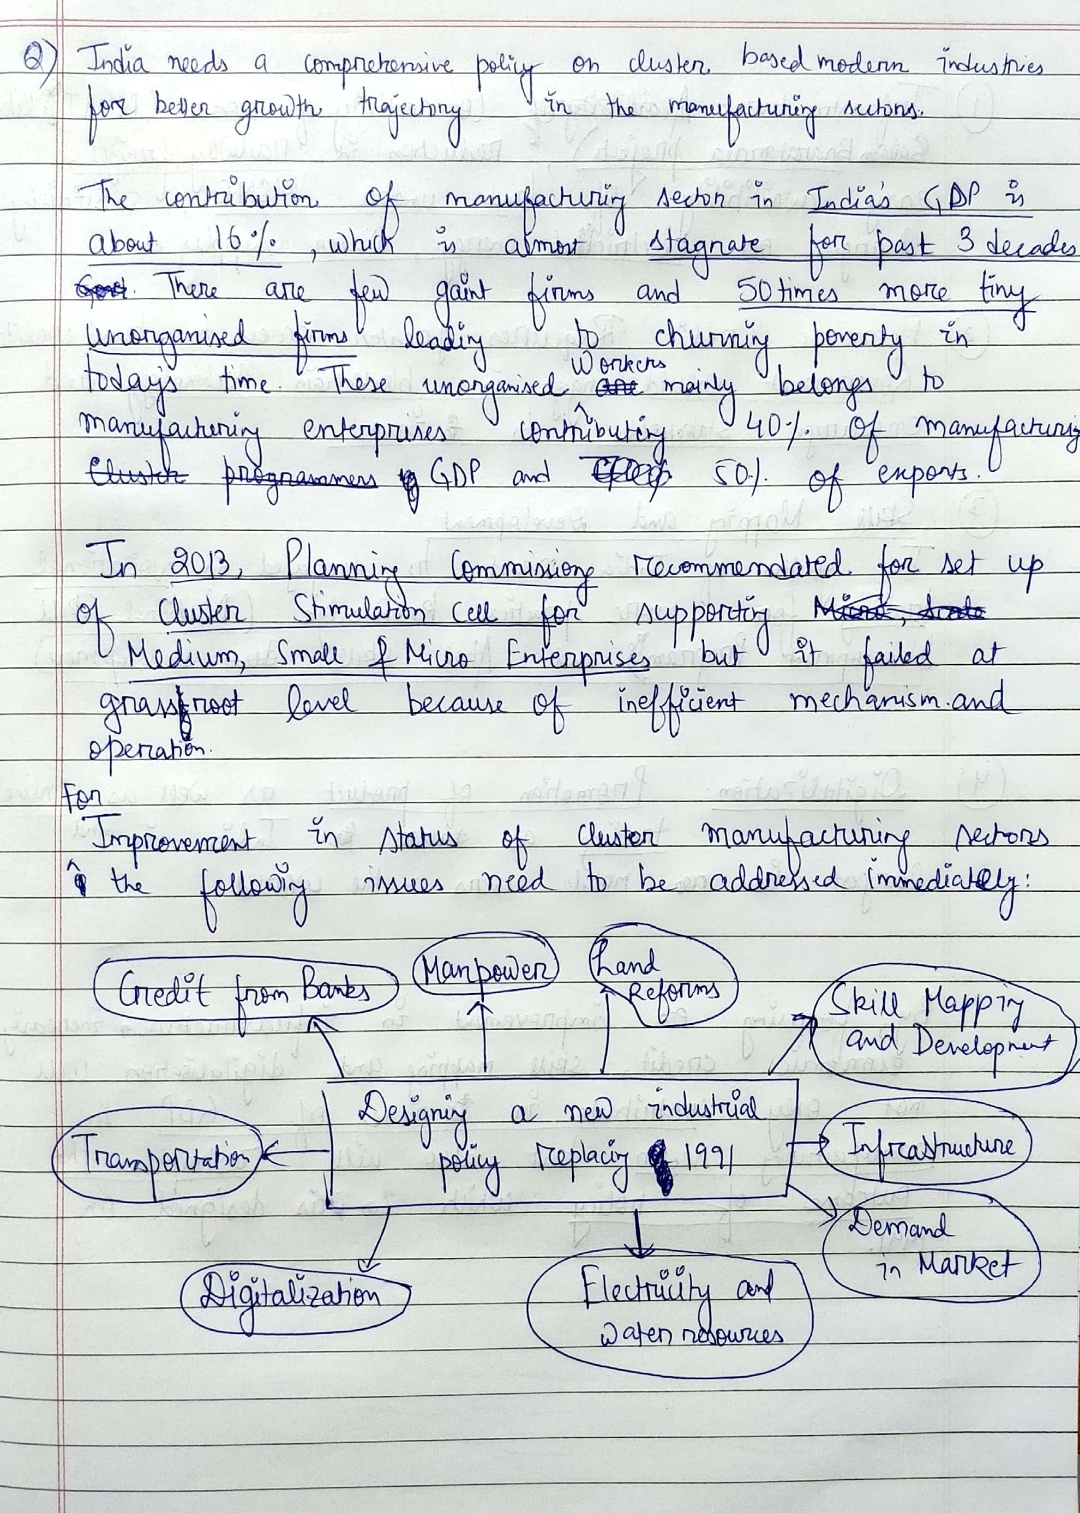 Q) India needs a comprehensive policy on cluster based modern industries
for better growth trajectory in the manufacturing sectors.
The contribution of manufacturing sector in India's GDP is
about 16%, which is almost stagnate for past 3 decades
There are few gaint firms and 50 times more tiny
unorganised firms leading to churning poverty in
today's time. These unorganised workers mainly belongs to
manufacturing enterprises contributing 40% of manufacturing
GDP and 50% of exports.
In 2013, Planning Commissiong recommendated for set up
of Cluster Stimulation Cell for supporting
Medium, Small & Micro Enterprises but it failed at
grassroot level because of inefficient mechanism and
operation.
For
Improvement in status of cluster manufacturing sectors
the following issues need to be addressed immediately:
Credit from Banks
Manpower
Land
Reforms
Skill Mapping
and Development
Designing a new industrial
policy replacing 1991
Transportation
Infrastructure
Demand
in Market
Digitalization
Electricity and
water resources